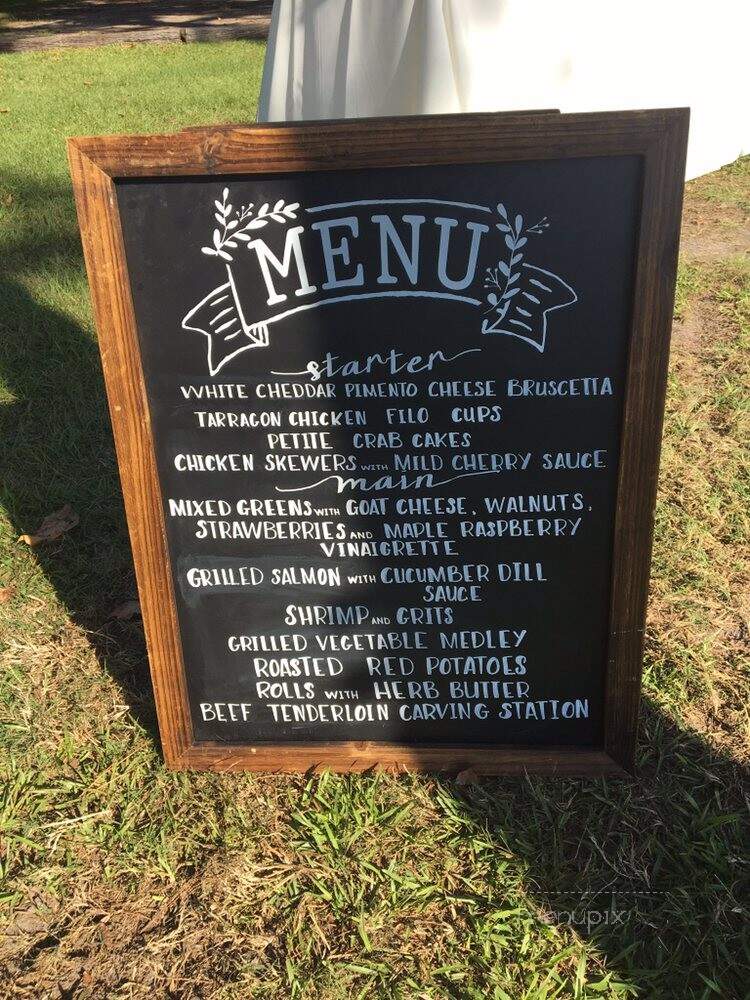 MENU
starter
WHITE CHEDDAR PIMENTO CHEESE BRUSCETTA
TARRAGON CHICKEN FILO CUPS
PETITE CRAB CAKES
CHICKEN SKEWERS WITH MILD CHERRY SAUCE
main
MIXED GREENS WITH GOAT CHEESE, WALNUTS,
STRAWBERRIES AND MAPLE RASPBERRY
VINAIGRETTE
GRILLED SALMON WITH CUCUMBER DILL
SAUCE
SHRIMP AND GRITS
GRILLED VEGETABLE MEDLEY
ROASTED RED POTATOES
ROLLS WITH HERB BUTTER
BEEF TENDERLOIN CARVING STATION
menupix